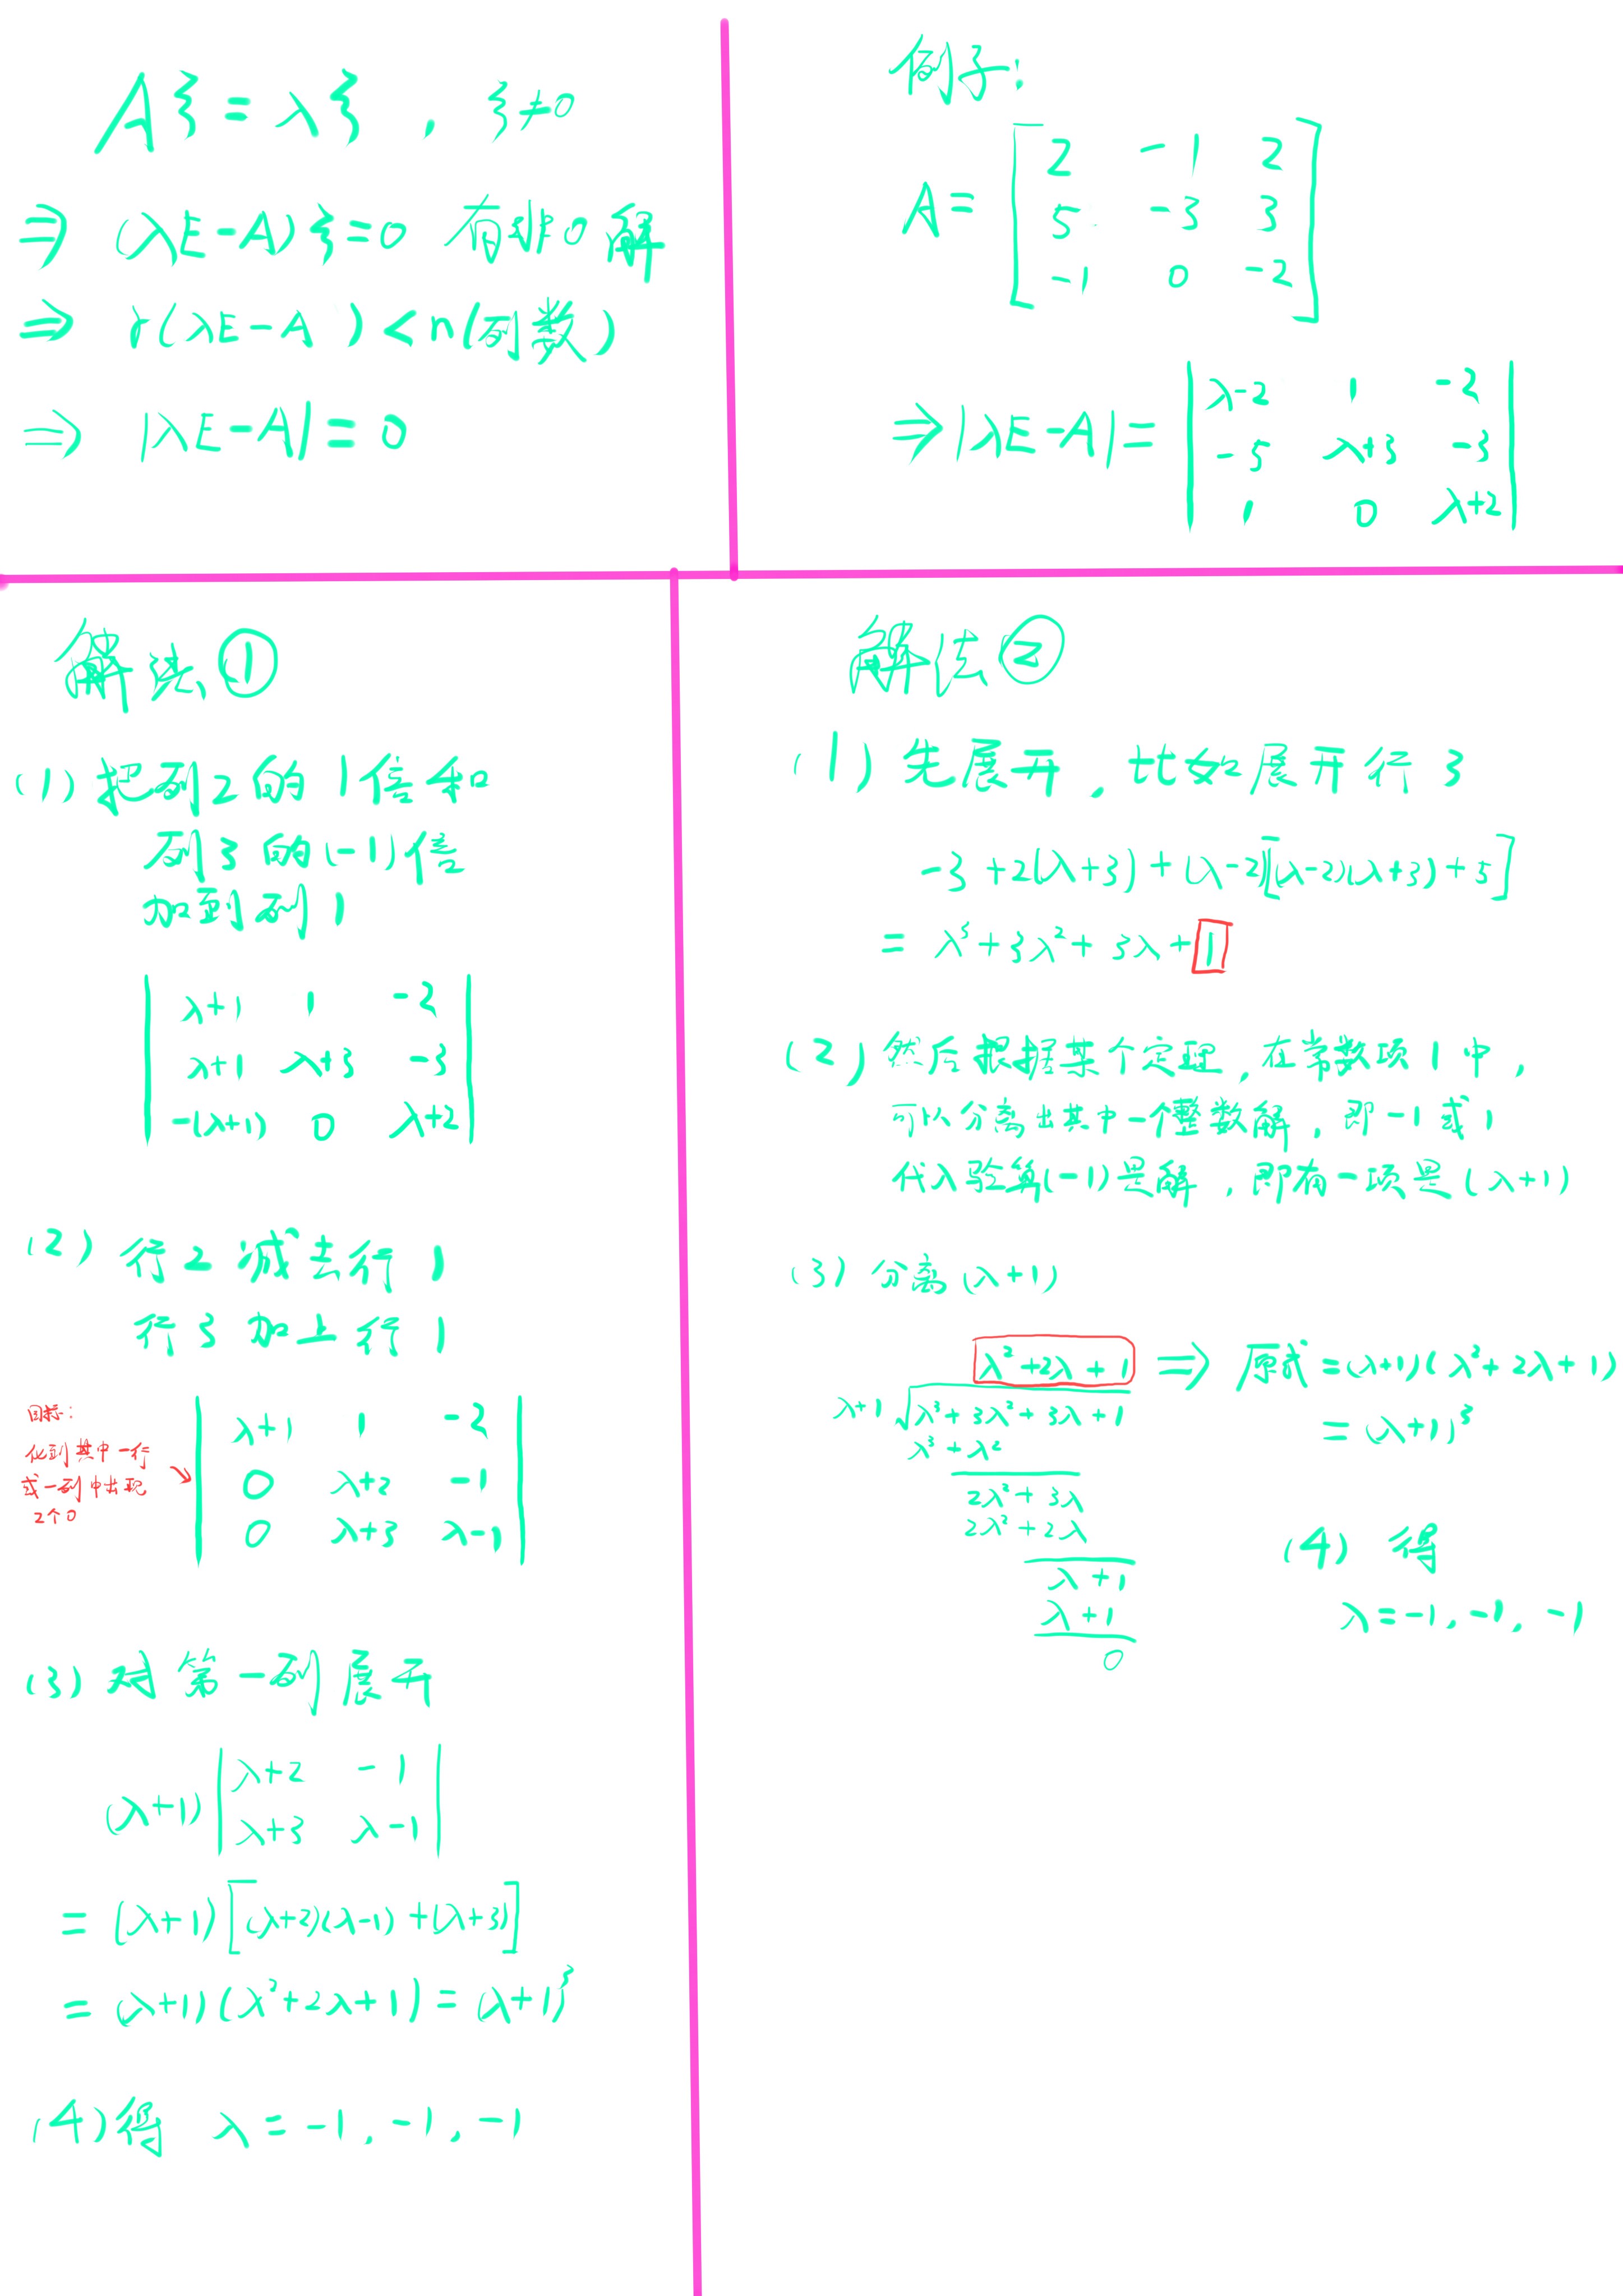 Aξ = λξ , ξ≠0
⇒ (λE-A)ξ=0 有非0解
⇒ r(λE-A) < n(列数)
⇒ |λE-A| = 0
例子:
A= [ 2 -1 2
5 -3 3
-1 0 -2 ]
⇒ |λE-A| = | λ-2 1 -2
-5 λ+3 -3
1 0 λ+2 |
解法①
(1) 把列2的1倍和
列3的(-1)倍
加到列1
| λ+1 1 -2
λ+1 λ+3 -3
-(λ+1) 0 λ+2 |
(2) 行2 减去行1
行3 加上行1
目标:
化到其中一行
或一列中出现
2个0
| λ+1 1 -2
0 λ+2 -1
0 λ+3 λ-1 |
(3) 对第一列展开
(λ+1) | λ+2 -1
λ+3 λ-1 |
= (λ+1)[(λ+2)(λ-1)+(λ+3)]
= (λ+1)(λ²+2λ+1) = (λ+1)³
(4) 得 λ = -1, -1, -1
解法②
(1) 先展开, 比如展开行3
-3+2(λ+3)+(λ+2)[(λ-2)(λ+3)+5]
= λ³+3λ²+3λ+1
(2) 然后根据基本定理,在常数项1中,
可以分离出其中一个整数解,即-1或1
代入验算(-1)是解,即有一项是(λ+1)
(3) 分离(λ+1)
λ²+2λ+1 ⇒ 原式=(λ+1)(λ²+2λ+1)
λ+1 √ λ³+3λ²+3λ+1
= (λ+1)³
λ³+λ²
2λ²+3λ
2λ²+2λ
λ+1
λ+1
0
(4) 得
λ=-1, -1, -1